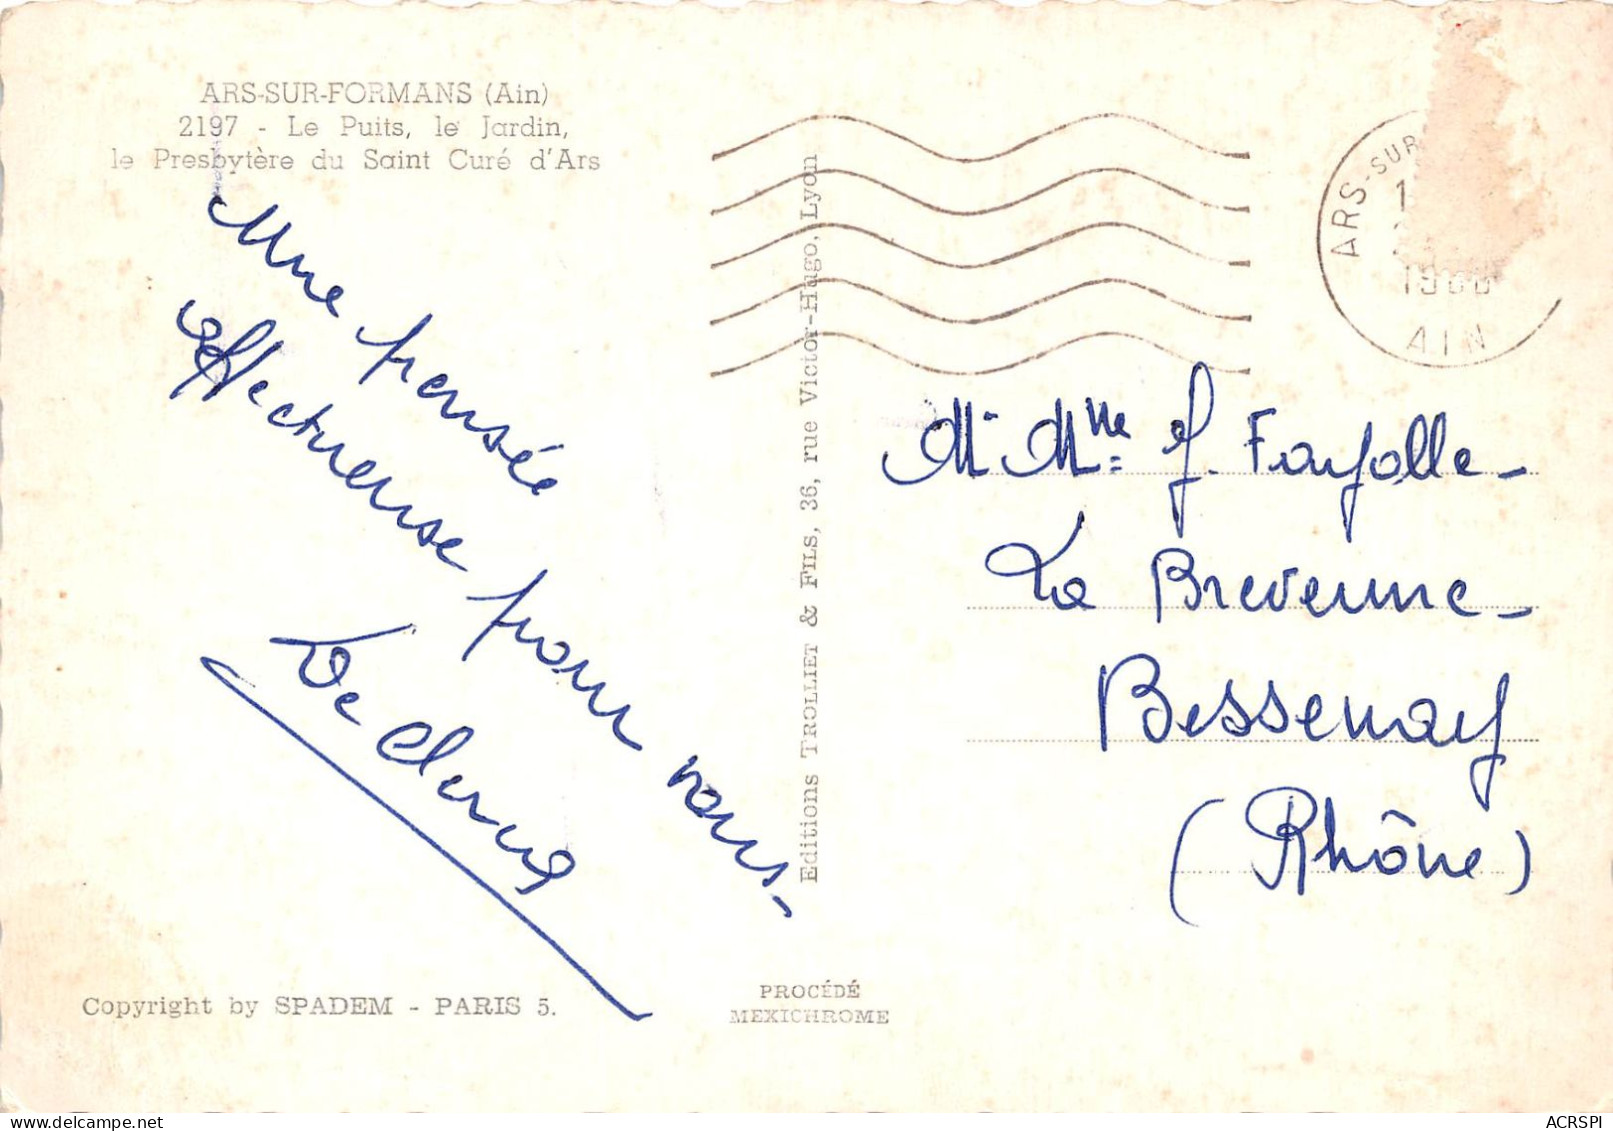 ARS-SUR-FORMANS (Ain)
2197 - Le Puits, le Jardin,
le Presbytère du Saint Curé d'Ars
Une pensée
affectueuse pour vous-
Copyright by SPADEM - PARIS 5.
Editions TROLLIET & FILS, 36, rue Victor-Hugo, Lyon
PROCÉDÉ
MEXICHROME
ARS-SUR
AIN
Mr Mme J. Fayolle-
La Brevenne-
Bessenay
(Rhône)
ACRSPI